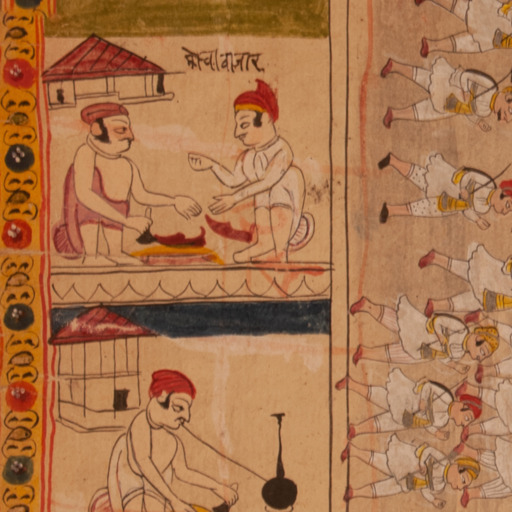 मोचीबाजार